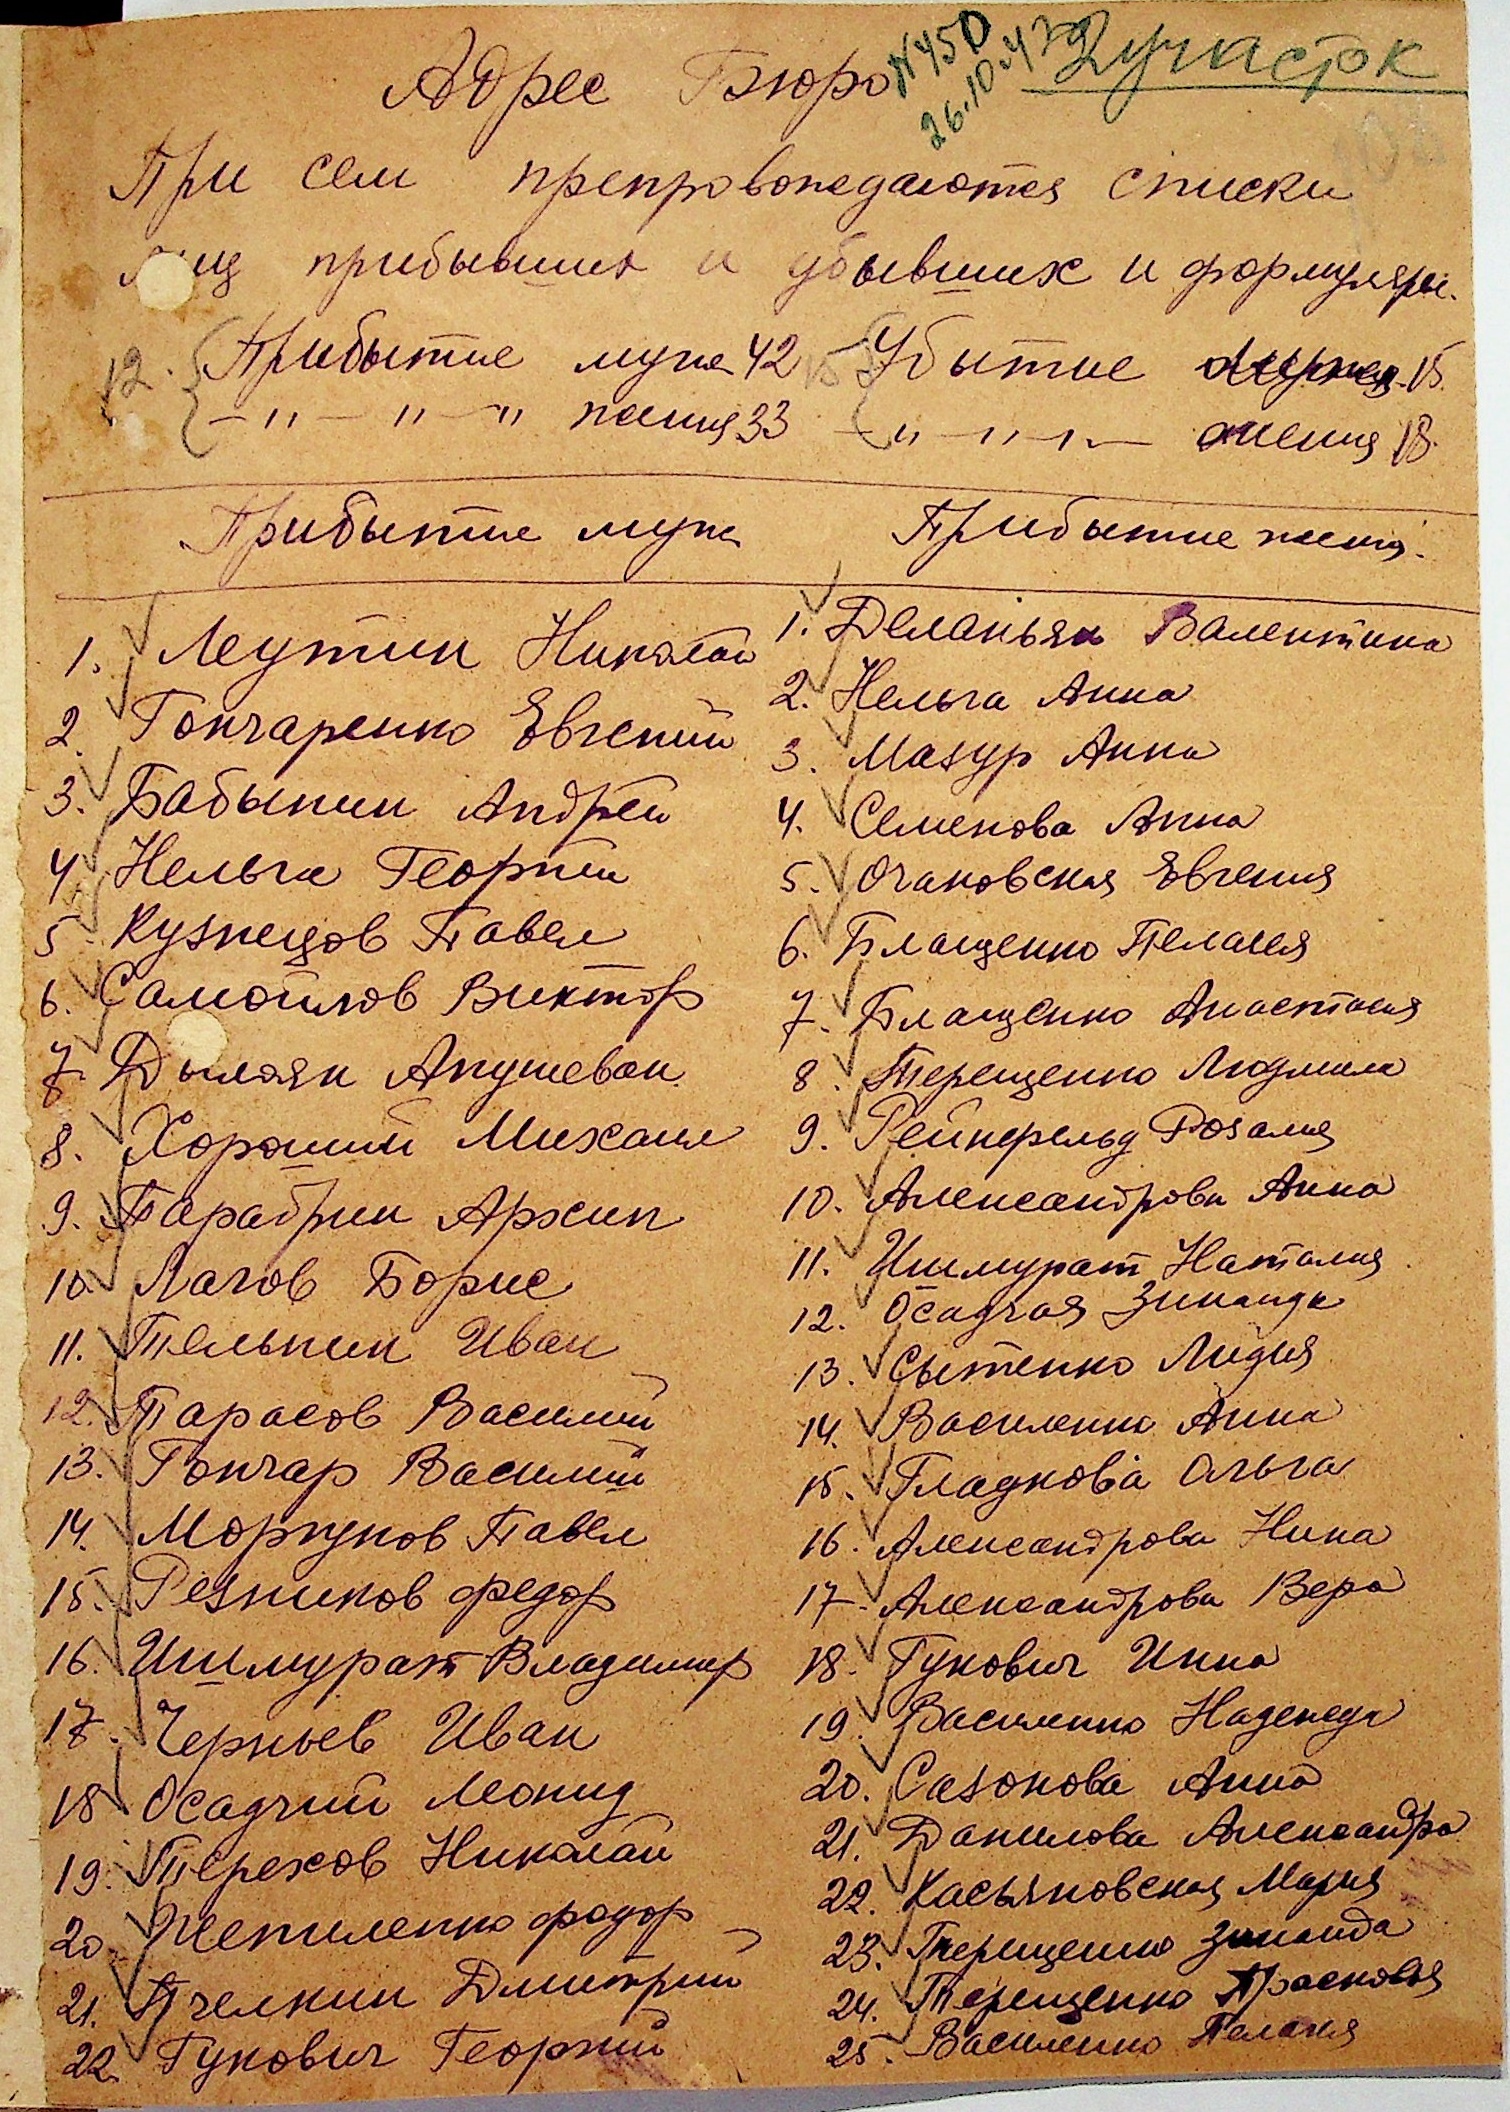 №450
26.10.47
2 участок
Адрес Бюро
При сем препровождаются списки
лиц прибывших и убывших и формуляры.
12. Прибытие муж 42
15 Убытие муж. 15.
—"— " —" жения 33
—"—"—"— жения 18.
Прибытие муж
Прибытие жения.
1. Леутин Николай
2. Гончаренко Евгений
3. Бабынин Андрей
4 Нельга Георгий
5. Кузнецов Павел
6. Самойлов Виктор
7. Дылоян Анушеван
8. Хороший Михаил
9. Тарабрин Архип
10. Лагов Борис
11. Тельпин Иван
12. Тарасов Василий
13. Гончар Василий
14. Моргунов Павел
15. Резников Федор
16. Ишмурат Владимир
17. Черньев Иван
18 Осадчий Леонид
19. Терехов Николай
20. Шепиленко Федор
21. Пчелкин Дмитрий
22. Гукович Георгий
1. Деланьян Валентина
2. Нельга Анна
3. Мазур Анна
4. Семенова Анна
5. Очаковская Евгения
6. Блащенко Пелагея
7. Блащенко Анастасия
8. Терещенко Людмила
9. Рейнфельд Розалия
10. Александрова Анна
11. Ишмурат Наталия
12. Осадчая Зинаида
13. Сытенко Лидия
14. Василенко Анна
15. Гладкова Ольга
16. Александрова Нина
17. Александрова Вера
18. Гукович Инна
19. Василенко Надежда
20. Сазонова Анна
21. Данилова Александра
22. Касьяновская Мария
23. Терещенко Зинаида
24. Терещенко Прасковья
25. Василенко Пелагея